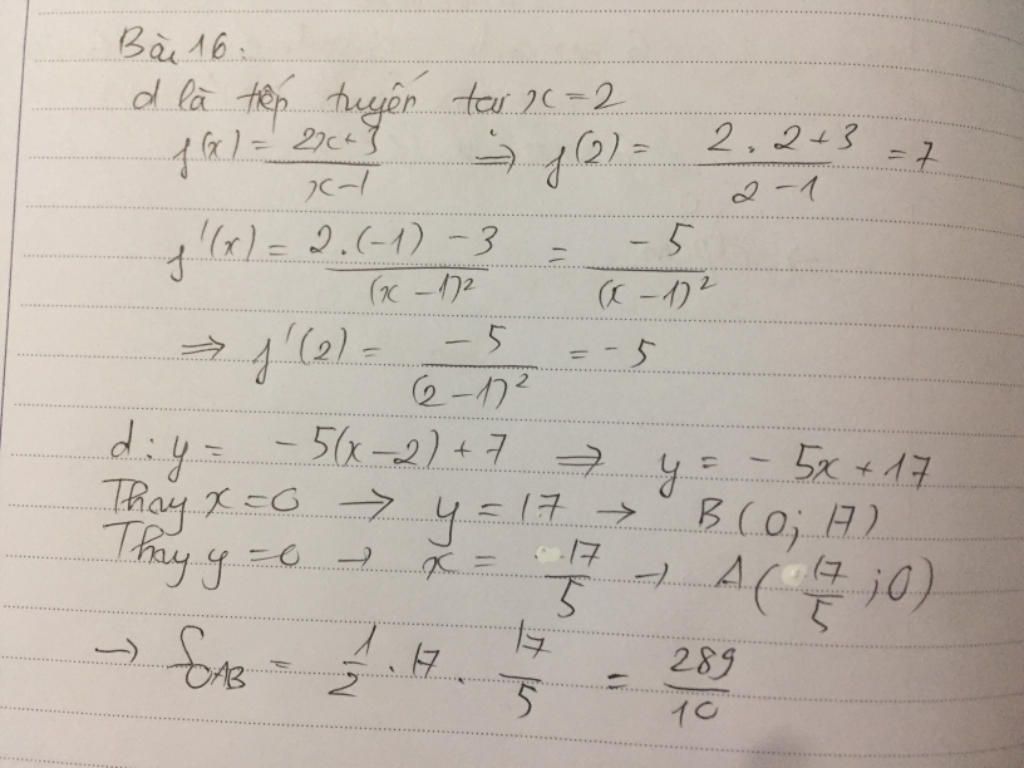 Bài 16:
d là tiếp tuyến tại x = 2
f(x) = (2x+3)/(x-1) ⇒ f(2) = (2.2+3)/(2-1) = 7
f'(x) = (2.(-1) - 3)/(x-1)² = -5/(x-1)²
⇒ f'(2) = -5/(2-1)² = -5
d: y = -5(x-2) + 7 ⇒ y = -5x + 17
Thay x = 0 → y = 17 → B(0; 17)
Thay y = 0 → x = 17/5 → A(17/5; 0)
→ S OAB = 1/2 . 17 . 17/5 = 289/10